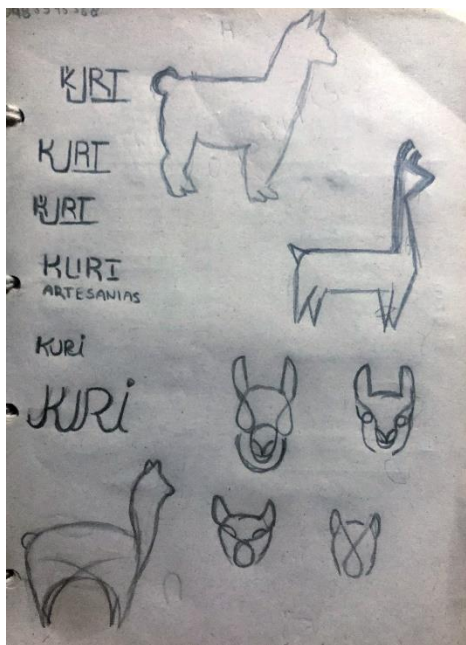 KURI
KURI
KURI
KURI
ARTESANIAS
KURi
KURi